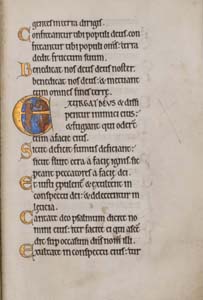 gentes in terra dirigis.
Confiteantur tibi populi deus con
fiteantur tibi populi omnes: terra
dedit fructum suum.
Benedicat nos deus deus noster.
benedicat nos deus: & metuant
eum omnes fines terre.
EXURGAT DEUS & dissi
pentur inimici eius:
& fugiant qui oder̄t
eum a facie eius.
Sicut deficit fumus deficiant:
sicut fluit cera a facie ignis. sic
peant peccatores a facie dei.
Et iusti epulent̄ & exultent in
conspectu dei: & delectentur in
leticia.
Cantate deo psalmum dicite no
mini eius: iter facite ei qui ascen
dit sup occasum dn̄s nom̄ illi.
Exultate in conspectu eius: tur